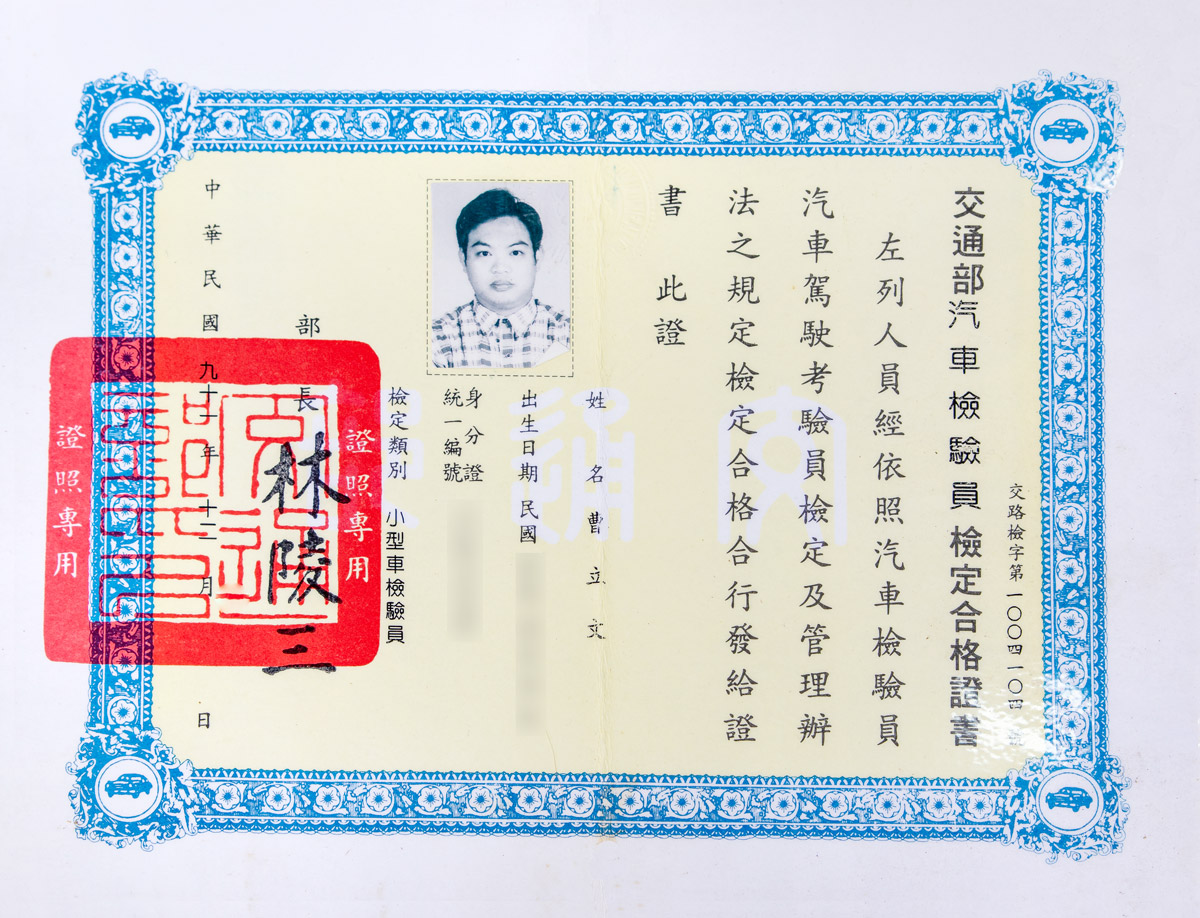 交路檢字第一〇〇四一〇四號
交通部汽車檢驗員檢定合格證書
左列人員經依照汽車檢驗員
汽車駕駛考驗員檢定及管理辦
法之規定檢定合格合行發給證
書 此證
姓名 曹立文
出生日期 民國
身分證
統一編號
檢定類別 小型車檢驗員
部長 林陵三
中華民國九十一年十二月 日
證照專用
證照專用